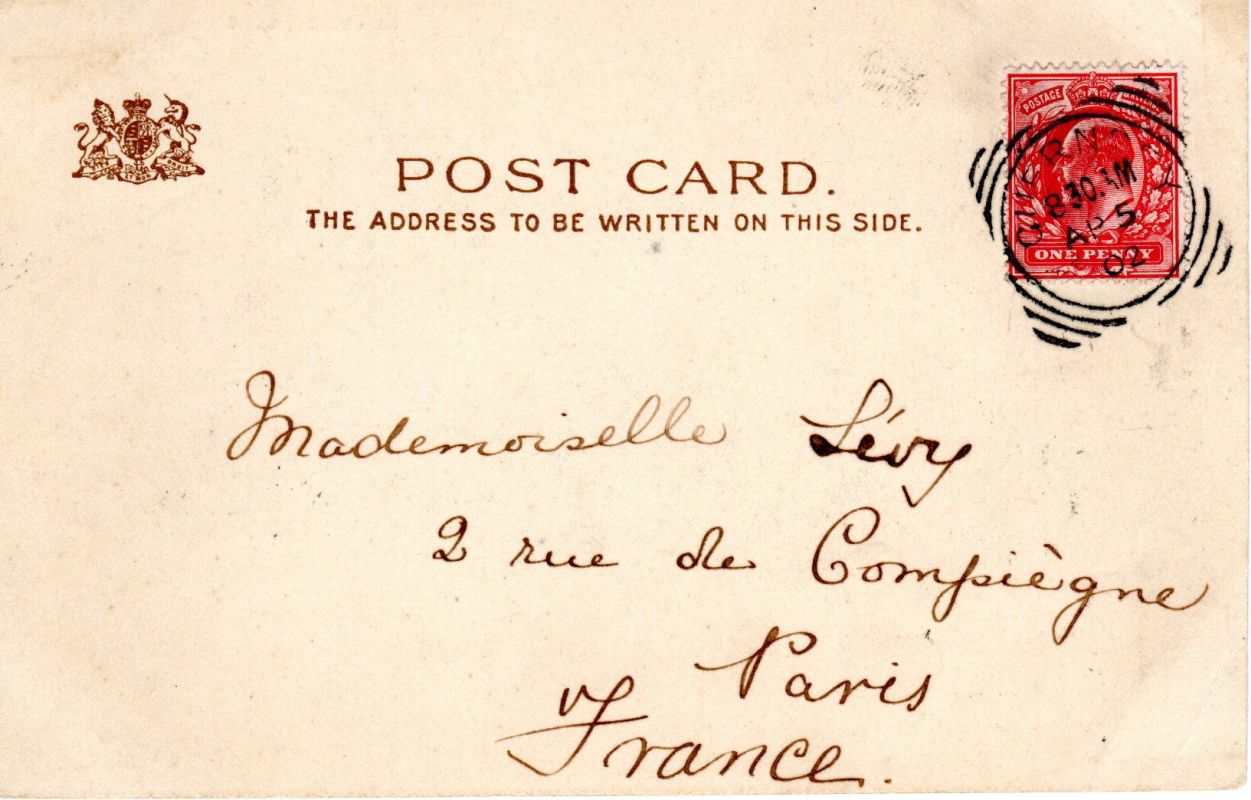 POST CARD.
THE ADDRESS TO BE WRITTEN ON THIS SIDE.
POSTAGE
ONE PENNY
8 30 AM
AP 5
02
Mademoiselle Lévy
2 rue de Compiègne
Paris
France.